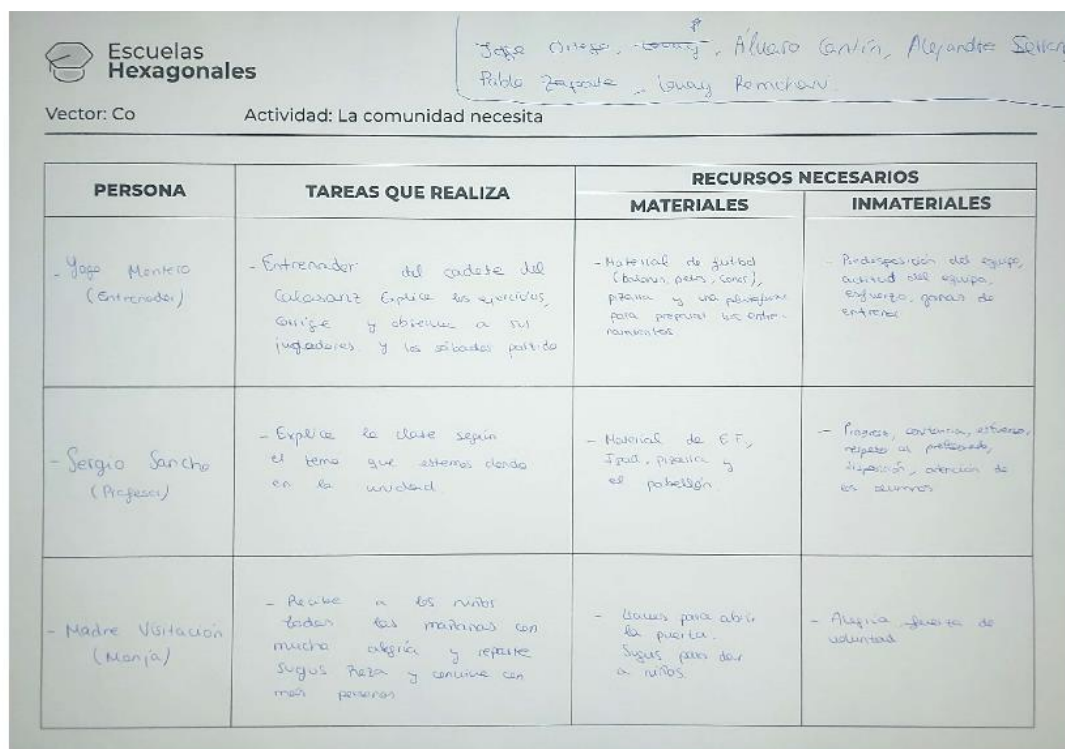 Escuelas
Hexagonales
Álvaro Cantín, Alejandro
Pablo
Vector: Co Actividad: La comunidad necesita
PERSONA TAREAS QUE REALIZA RECURSOS NECESARIOS
MATERIALES INMATERIALES
- Yago Montero
(Entrenador)
- Entrenador del cadete del
Calasanz Explica los ejercicios,
corrige y observa a sus
jugadores. y los sábados partido
- Material de futbol
(balones, petos, conos),
pizarra y una plataforma
para preparar los entre-
namientos.
- Predisposición del equipo,
actitud del equipo,
esfuerzo, ganas de
entrenar
- Sergio Sancho
(Profesor)
- Explica la clase según
el tema que estemos dando
en la unidad
- Material de E.F.,
Ipad, pizarra y
el pabellón.
- Progreso, constancia, esfuerzo,
respeto al profesorado,
disposición, atención de
los alumnos
- Madre Visitación
(Monja)
- Recibe a los niños
todas las mañanas con
mucha alegría y reparte
Sugus Reza y convive con
más personas
- Llaves para abrir
la puerta.
Sugus para dar
a niños.
- Alegría fuerza de
voluntad